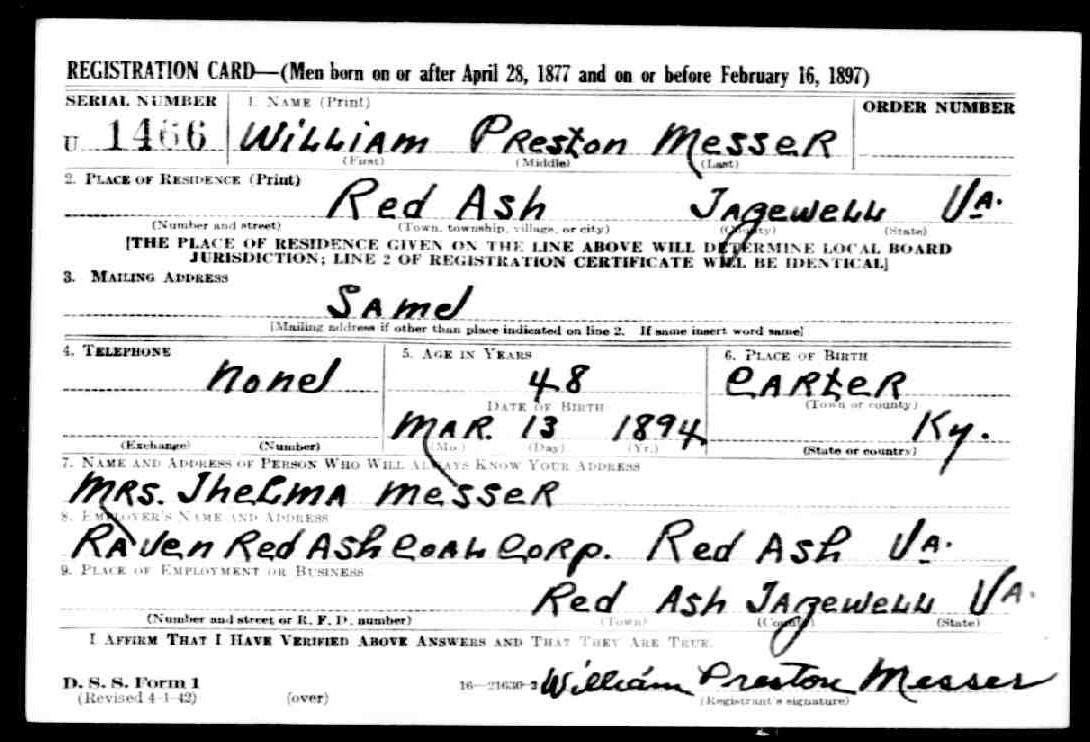 REGISTRATION CARD—(Men born on or after April 28, 1877 and on or before February 16, 1897)
SERIAL NUMBER 1. NAME (Print) ORDER NUMBER
U 1466 William Preston Messer
(First) (Middle) (Last)
2. PLACE OF RESIDENCE (Print)
Red Ash Tazewell Va.
(Number and street) (Town, township, village, or city) (County) (State)
[THE PLACE OF RESIDENCE GIVEN ON THE LINE ABOVE WILL DETERMINE LOCAL BOARD
JURISDICTION; LINE 2 OF REGISTRATION CERTIFICATE WILL BE IDENTICAL]
3. MAILING ADDRESS
Same
[Mailing address if other than place indicated on line 2. If same insert word same]
4. TELEPHONE 5. AGE IN YEARS 6. PLACE OF BIRTH
None 48 Carter
DATE OF BIRTH (Town or county)
Mar. 13 1894 Ky.
(Exchange) (Number) (Mo.) (Day) (Yr.) (State or country)
7. NAME AND ADDRESS OF PERSON WHO WILL ALWAYS KNOW YOUR ADDRESS
Mrs. Thelma Messer
8. EMPLOYER'S NAME AND ADDRESS
Raven Red Ash Coal Corp. Red Ash Va.
9. PLACE OF EMPLOYMENT OR BUSINESS
Red Ash Tazewell Va.
(Number and street or R. F. D. number) (Town) (County) (State)
I AFFIRM THAT I HAVE VERIFIED ABOVE ANSWERS AND THAT THEY ARE TRUE.
D. S. S. Form 1 16—21630-2 William Preston Messer
(Revised 4-1-42) (over) (Registrant's signature)